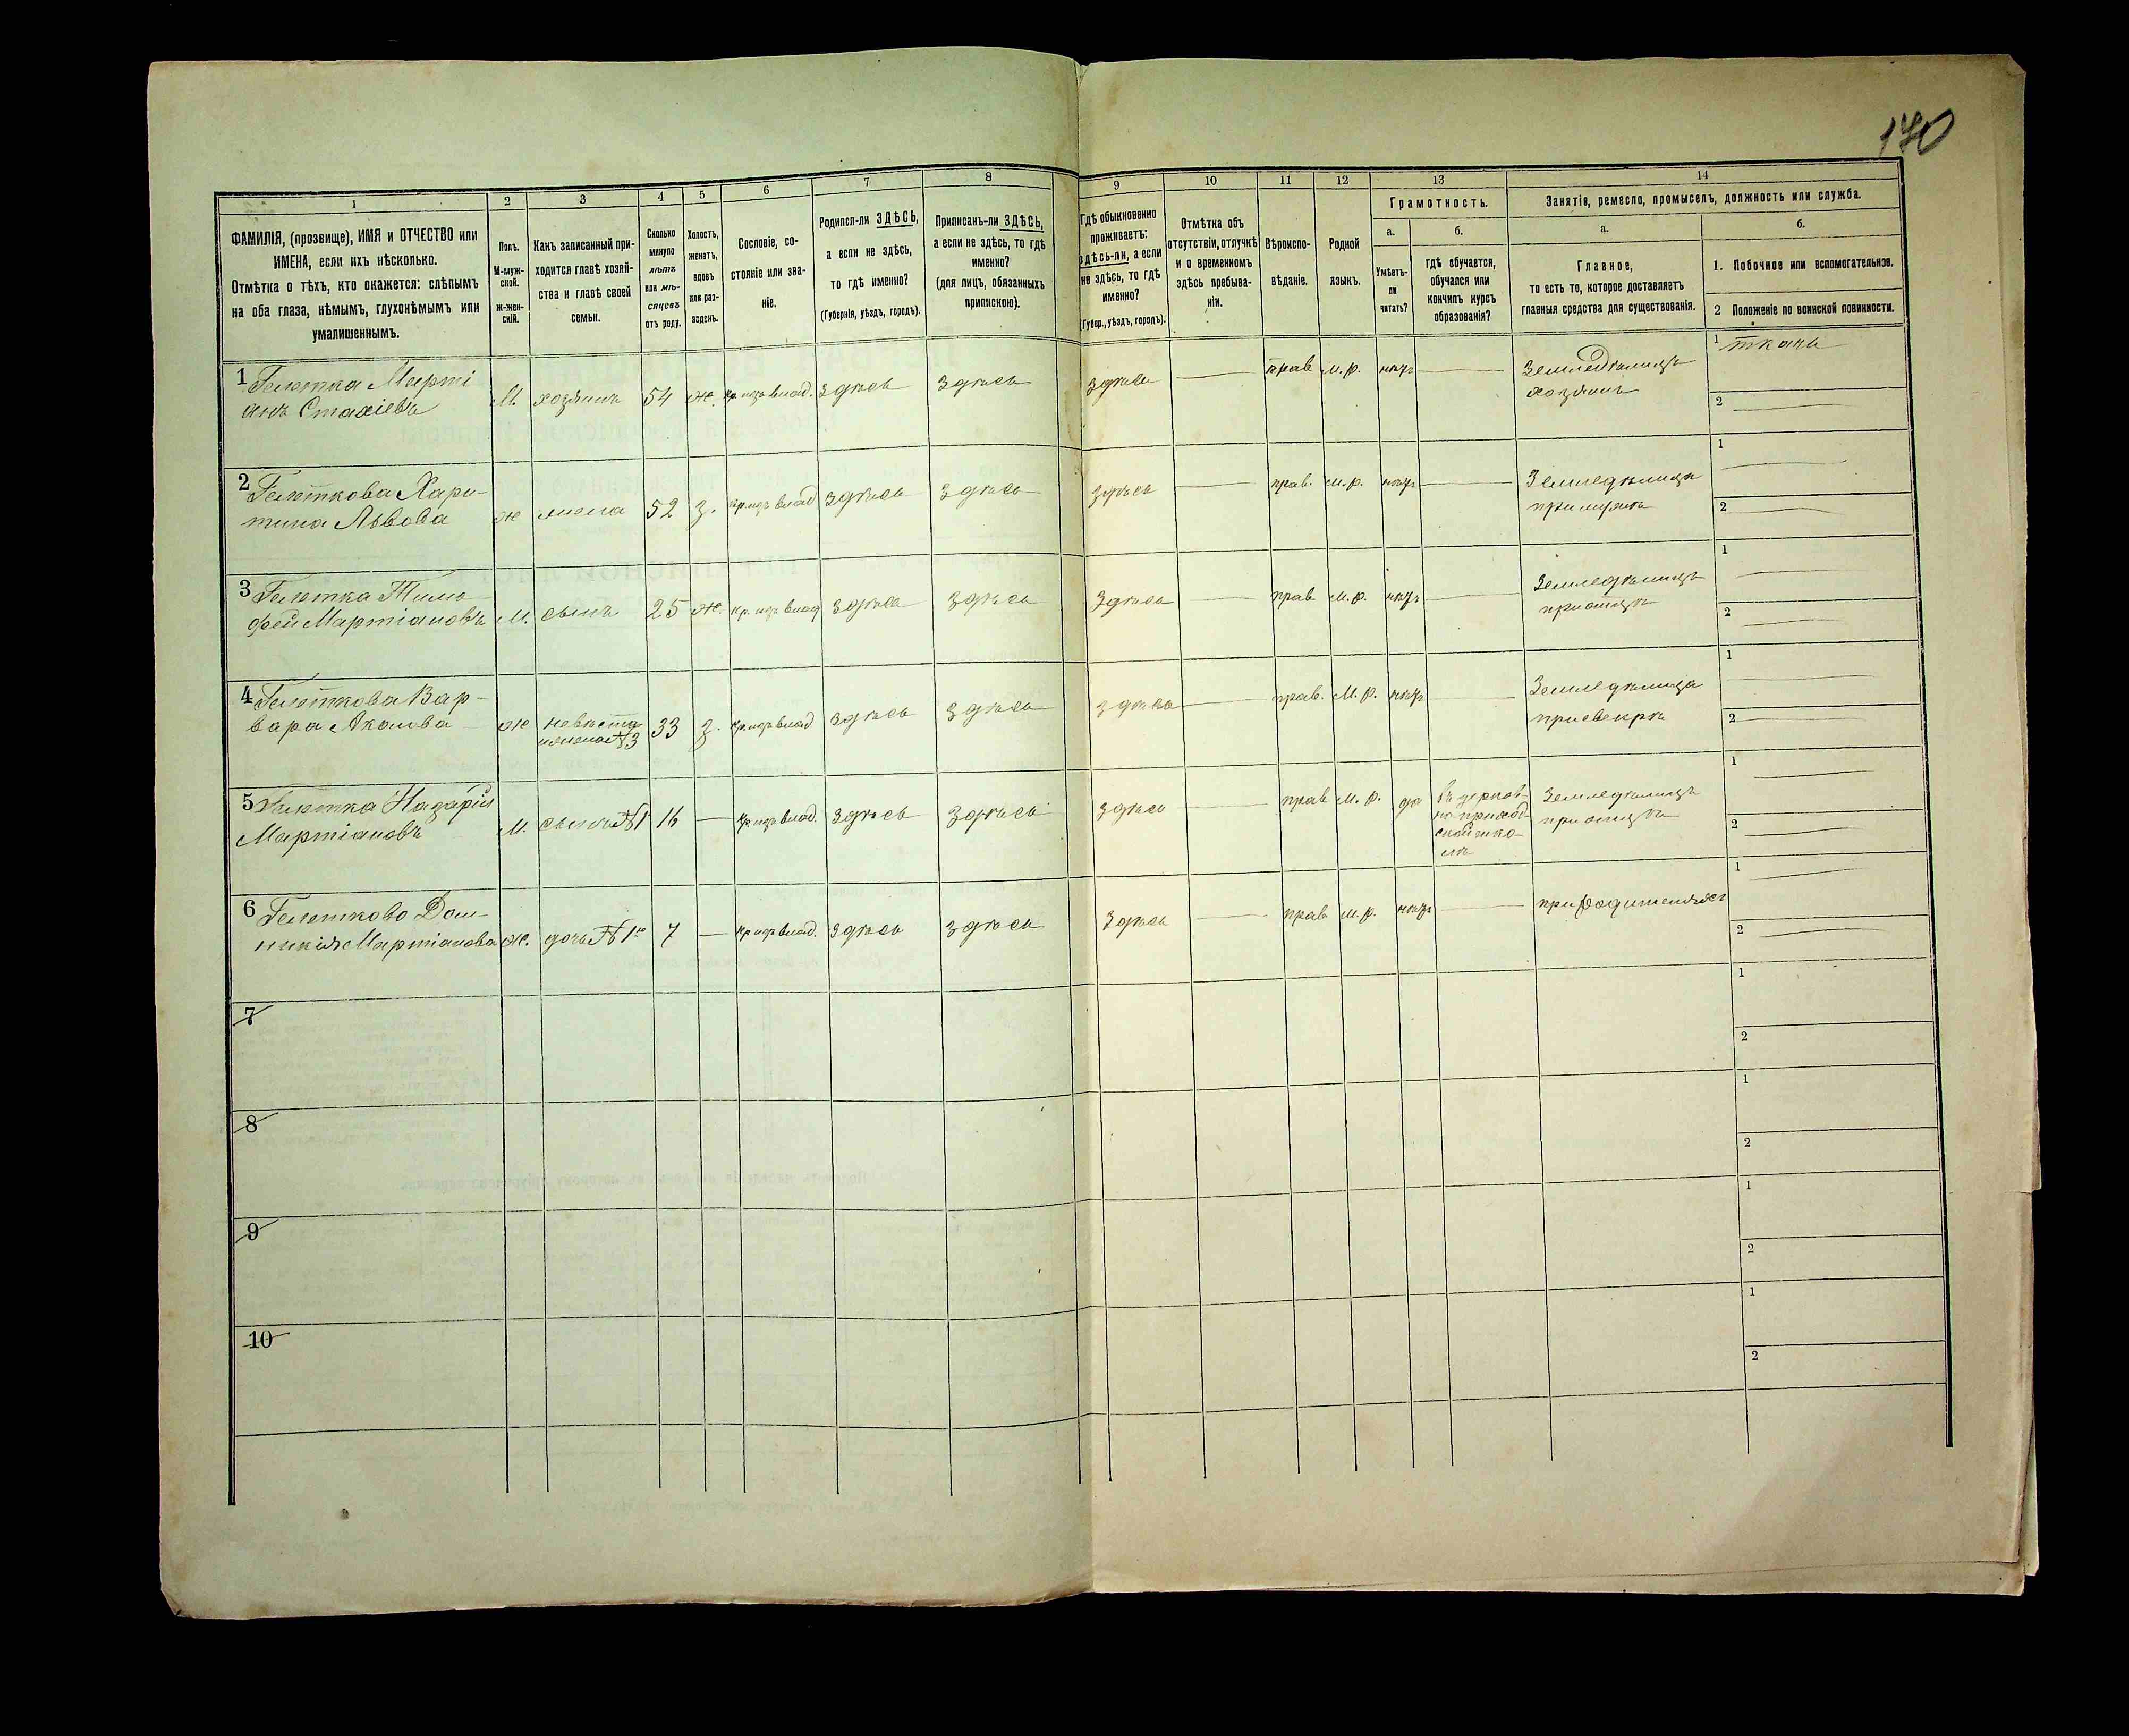 170
1
2
3
4
5
6
7
8
9
10
11
12
13
14
ФАМИЛІЯ, (прозвище), ИМЯ и ОТЧЕСТВО или
ИМЕНА, если ихъ нѣсколько.
Отмѣтка о тѣхъ, кто окажется: слѣпымъ
на оба глаза, нѣмымъ, глухонѣмымъ или
умалишеннымъ.
Полъ.
М-муж-
ской.
Ж-жен-
скій.
Какъ записанный при-
ходится главѣ хозяй-
ства и главѣ своей
семьи.
Сколько
минуло
лѣтъ
или мѣ-
сяцевъ
отъ роду.
Холостъ,
женатъ,
вдовъ
или раз-
веденъ.
Сословіе, со-
стояніе или зва-
ніе.
Родился-ли ЗДѢСЬ,
а если не здѣсь,
то гдѣ именно?
(Губернія, уѣздъ, городъ).
Приписанъ-ли ЗДѢСЬ,
а если не здѣсь, то гдѣ
именно?
(для лицъ, обязанныхъ
припискою).
Гдѣ обыкновенно
проживаетъ:
здѣсь-ли, а если
не здѣсь, то гдѣ
именно?
(Губер., уѣздъ, городъ).
Отмѣтка объ
отсутствіи, отлучкѣ
и о временномъ
здѣсь пребыва-
ніи.
Вѣроиспо-
вѣданіе.
Родной
языкъ.
Грамотность.
а.
Умѣетъ-
ли
читать?
б.
гдѣ обучается,
обучался или
кончилъ курсъ
образованія?
Занятія, ремесло, промыселъ, должность или служба.
а.
Главное,
то есть то, которое доставляетъ
главныя средства для существованія.
б.
1. Побочное или вспомогательное.
2 Положеніе по воинской повинности.
1 Гелетка Марті
янъ Стахіевъ
М. хозяинъ 54 ж. кр. изъ влад. здѣсь здѣсь
здѣсь — прав м.р. нѣтъ — Земледѣлецъ
хозяинъ
1 ткачь
2 —
2 Гелеткова Хари-
тина Львова
ж жена 52 з. кр. изъ влад здѣсь здѣсь
здѣсь — прав. м.р. нѣтъ — Земледѣлица
при мужѣ
1 —
2 —
3 Гелетка Тимо
фей Мартіановъ
М. сынъ 25 ж. кр. изъ влад здѣсь здѣсь
здѣсь — прав м.р. нѣтъ — Земледѣлецъ
при отцѣ
1 —
2 —
4 Гелеткова Вар-
вара Акопова
ж невѣстка
жена №3 33 з. кр. изъ влад здѣсь здѣсь
здѣсь — прав. М.р. нѣтъ — Земледѣлица
при свекрѣ
1 —
2 —
5 Гелетка Назарій
Мартіановъ
М. сынъ №1 16 — кр. изъ влад. здѣсь здѣсь
здѣсь — прав м.р. да въ церков-
но приход-
ской шко-
лѣ
Земледѣлецъ
при отцѣ
1 —
2 —
6 Гелеткова Дом-
никія Мартіанова
ж. дочь №1го 7 — кр. изъ влад. здѣсь здѣсь
здѣсь — прав м.р. нѣтъ — при родителяхъ
1 —
2 —
7
1
2
8
1
2
9
1
2
10
1
2